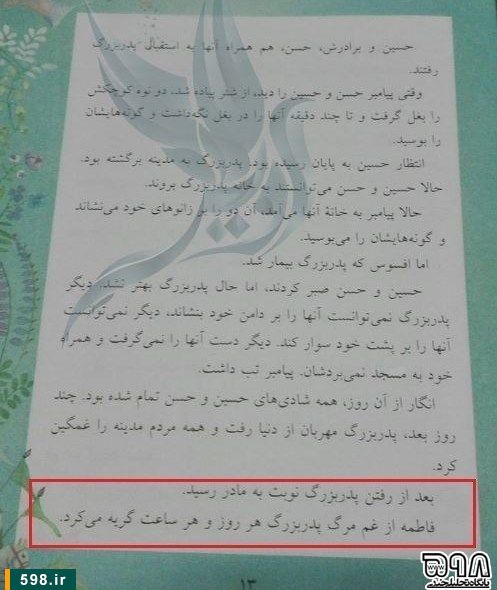 حسین و برادرش، حسن، هم همراه آنها به استقبال پدربزرگ
رفتند.
وقتی پیامبر حسن و حسین را دید، از شتر پیاده شد. دو نوه کوچکش
را بغل گرفت و تا چند دقیقه آنها را در بغل نگه‌داشت و گونه‌هایشان
را بوسید.
انتظار حسین به پایان رسیده بود. پدربزرگ به مدینه برگشته بود.
حالا حسین و حسن می‌توانستند به خانه پدربزرگ بروند.
حالا پیامبر به خانهٔ آنها می‌آمد، آن دو را بر زانوهای خود می‌نشاند
و گونه‌هایشان را می‌بوسید.
اما افسوس که پدربزرگ بیمار شد.
حسین و حسن صبر کردند، اما حال پدربزرگ بهتر نشد. دیگر
پدربزرگ نمی‌توانست آنها را بر دامن خود بنشاند، دیگر نمی‌توانست
آنها را بر پشت خود سوار کند. دیگر دست آنها را نمی‌گرفت و همراه
خود به مسجد نمی‌بردشان. پیامبر تب داشت.
انگار از آن روز، همه شادی‌های حسین و حسن تمام شده بود. چند
روز بعد، پدربزرگ مهربان از دنیا رفت و همه مردم مدینه را غمگین
کرد.
بعد از رفتن پدربزرگ نوبت به مادر رسید.
فاطمه از غم مرگ پدربزرگ هر روز و هر ساعت گریه می‌کرد.
۱۳
598.ir
۵۹۸
پایگاه تحلیلی خبری